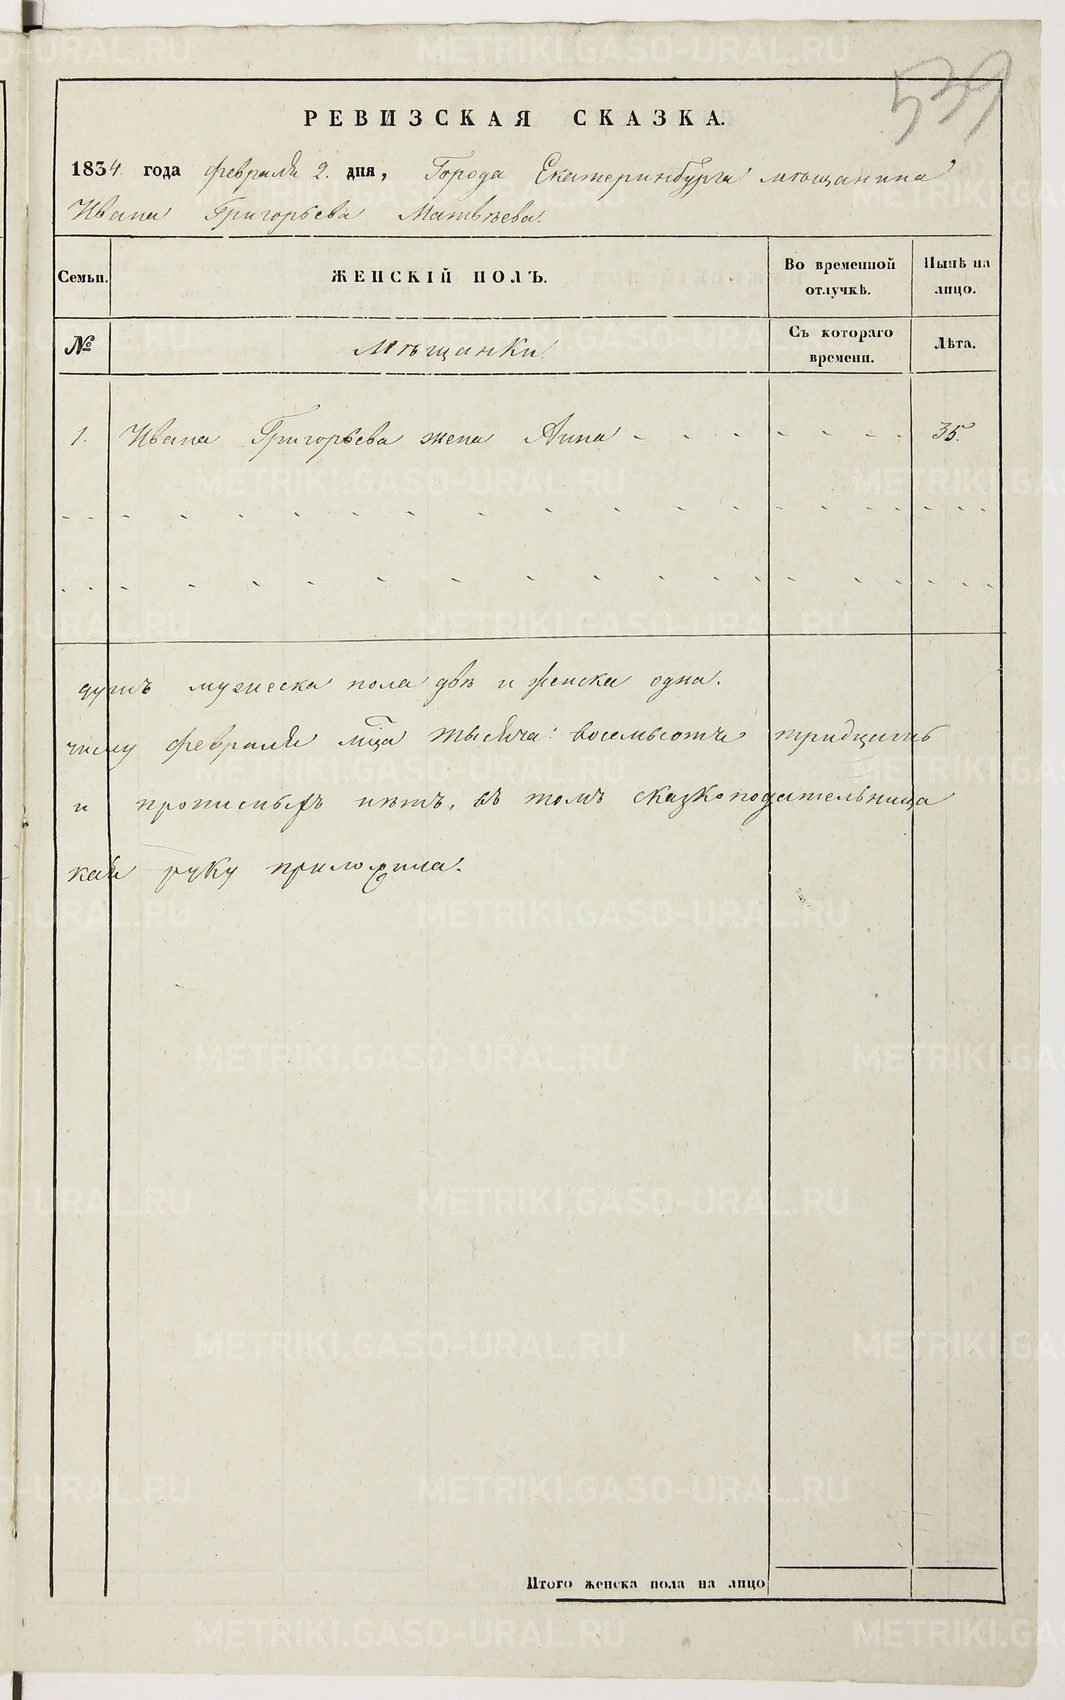 539
РЕВИЗСКАЯ СКАЗКА.
1834 года февраля 2. дня, Города Екатеринбурга мѣщанина
Ивана Григорьева Матвѣева.
Семьи. ЖЕНСКІЙ ПОЛЪ. Во временной отлучкѣ. Нынѣ на лицо.
№ Мѣщанки Съ котораго времени. Лѣта.
1. Ивана Григорьева жена Анна 35.
душъ мужеска пола двѣ и женска одна.
числу февраля мца тысяча восемьсотъ тридцать
и прописныхъ нѣтъ, въ томъ сказкоподательница
кая руку приложила.
Итого женска пола на лицо
METRIKI.GASO-URAL.RU